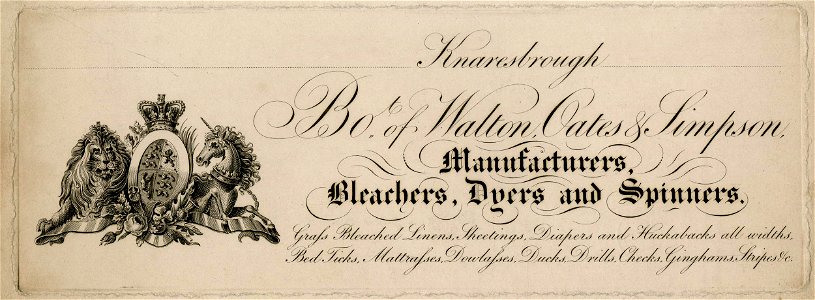 Knaresbrough
Bo.t of Walton, Oates & Simpson,
Manufacturers,
Bleachers, Dyers and Spinners,
Graſs Bleached Linens, Sheetings, Diapers and Huckabacks all widths,
Bed Ticks, Mattraſses, Dowlaſses, Ducks, Drills, Checks, Ginghams, Stripes &c.